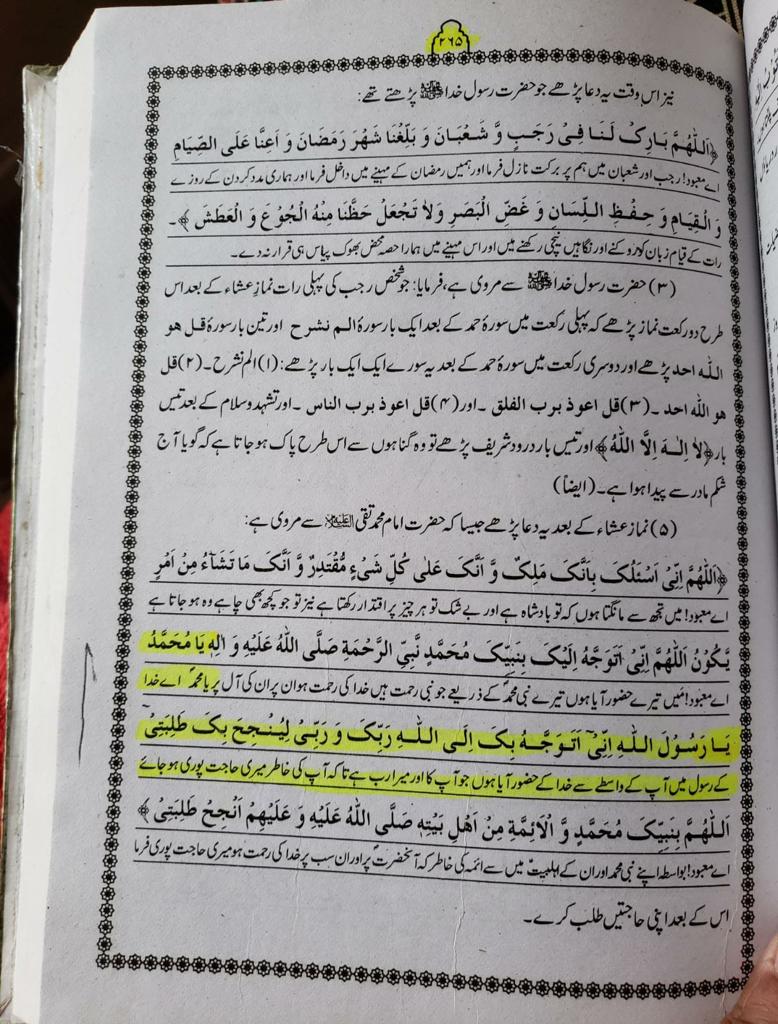 ۲۶۵
نیز اس وقت یہ دعا پڑھے جو حضرت رسول خدا ﷺ پڑھتے تھے:
﴿اَللّٰھُمَّ بَارِکْ لَنَا فِیْ رَجَبٍ وَّ شَعْبَانَ وَ بَلِّغْنَا شَھْرَ رَمَضَانَ وَ اَعِنَّا عَلَی الصِّیَامِ
اے معبود! رجب اور شعبان میں ہم پر برکت نازل فرما اور ہمیں رمضان کے مہینے میں داخل فرما اور ہماری مدد کر دن کے روزے
وَ الْقِیَامِ وَ حِفْظِ اللِّسَانِ وَ غَضِّ الْبَصَرِ وَلاَ تَجْعَلْ حَظَّنَا مِنْهُ الْجُوْعَ وَ الْعَطَشَ﴾۔
رات کے قیام زبان کو روکنے اور نگاہیں نیچی رکھنے میں اور اس مہینے میں ہمارا حصہ محض بھوک پیاس ہی قرار نہ دے۔
(۳) حضرت رسول خدا ﷺ سے مروی ہے، فرمایا: جو شخص رجب کی پہلی رات نماز عشاء کے بعد اس
طرح دو رکعت نماز پڑھے کہ پہلی رکعت میں سورۂ حمد کے بعد ایک بار سورہ الم نشرح اور تین بار سورہ قل ھو
اللہ احد پڑھے اور دوسری رکعت میں سورۂ حمد کے بعد یہ سورے ایک ایک بار پڑھے: (۱) الم نشرح۔ (۲) قل
ھو اللہ احد۔ (۳) قل اعوذ برب الفلق۔ اور (۴) قل اعوذ برب الناس۔ اور تشہد و سلام کے بعد تیس
بار ﴿لاَ اِلٰهَ اِلَّا اللّٰهُ﴾ اور تیس بار درود شریف پڑھے تو وہ گناہوں سے اس طرح پاک ہو جاتا ہے کہ گویا آج
شکم مادر سے پیدا ہوا ہے۔ (ایضاً)
(۵) نماز عشاء کے بعد یہ دعا پڑھے جیسا کہ حضرت امام محمد تقی علیہ السلام سے مروی ہے:
﴿اَللّٰھُمَّ اِنِّیْ اَسْئَلُکَ بِاَنَّکَ مَلِکٌ وَّ اَنَّکَ عَلٰی کُلِّ شَیْءٍ مُّقْتَدِرٌ وَّ اَنَّکَ مَا تَشَآءُ مِنْ اَمْرٍ
اے معبود! میں تجھ سے مانگتا ہوں کہ تو بادشاہ ہے اور بے شک تو ہر چیز پر اقتدار رکھتا ہے نیز تو جو کچھ بھی چاہے وہ ہو جاتا ہے
یَّکُوْنُ اَللّٰھُمَّ اِنِّیْ اَتَوَجَّهُ اِلَیْکَ بِنَبِیِّکَ مُحَمَّدٍ نَّبِیِّ الرَّحْمَةِ صَلَّی اللّٰهُ عَلَیْهِ وَ اٰلِهٖ یَا مُحَمَّدُ
اے معبود! میں تیرے حضور آیا ہوں تیرے نبی محمدؐ کے ذریعے جو نبی رحمت ہیں خدا کی رحمت ہو ان پر ان کی آل پر یا محمدؐ اے خدا
یَا رَسُوْلَ اللّٰهِ اِنِّیْ اَتَوَجَّهُ بِکَ اِلَی اللّٰهِ رَبِّکَ وَ رَبِّیْ لِیُنْجِحَ بِکَ طَلِبَتِیْ
کے رسول میں آپ کے واسطے سے خدا کے حضور آیا ہوں جو آپ کا اور میرا رب ہے تا کہ آپ کی خاطر میری حاجت پوری ہو جائے
اَللّٰھُمَّ بِنَبِیِّکَ مُحَمَّدٍ وَّ الْاَئِمَّةِ مِنْ اَھْلِ بَیْتِهٖ صَلَّی اللّٰهُ عَلَیْهِ وَ عَلَیْھِمْ اَنْجِحْ طَلِبَتِیْ﴾
اے معبود! بواسطہ اپنے نبی محمد اور ان کے اہلبیتؑ میں سے ائمہ کی خاطر کہ آنحضرتؐ پر اور ان سب پر خدا کی رحمت ہو میری حاجت پوری فرما
اس کے بعد اپنی حاجتیں طلب کرے۔